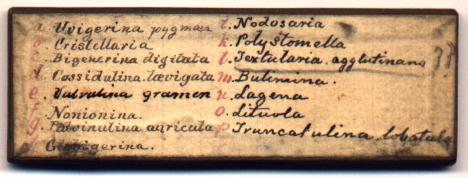 a. Uvigerina pygmaea
Cristellaria
Bigenerina digitata
d. Cassidulina lævigata
e. Valvulina gramen
f. Nonionina.
g. Pulvinulina auricula
Globigerina.
i. Nodosaria
k. Polystomella
l. Textularia agglutinans
m. Bulimina.
n. Lagena
o. Lituola
p. Truncatulina lobatula